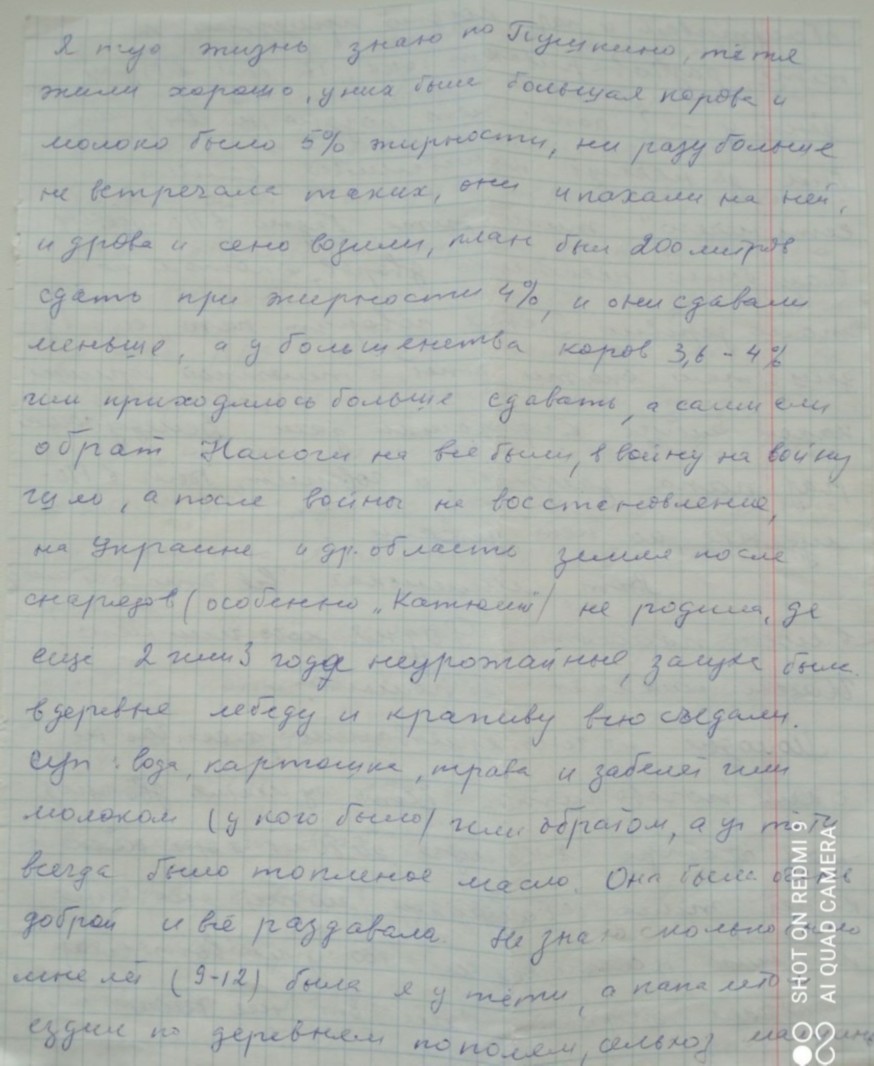 Я ту жизнь знаю по Пушкино, тётя
жили хорошо, у них была большая корова и
молоко было 5% жирности, ни разу больше
не встречала таких, они и пахали на ней,
и дрова и сено возили, план был 200 литров
сдать при жирности 4%, и они сдавали
меньше, а у большенства коров 3,6 - 4%
им приходилось больше сдавать, а сами ели
обрат Налоги на всё были, в войну на войну
шло, а после войны на восстановление,
на Украине и др. области земля после
снарядов (особенно „Катюш") не родила, да
еще 2 или 3 года неурожайные, засуха была.
в деревне лебеду и крапиву всю съедали.
суп: вода, картошка, трава и забелят или
молоком (у кого было) или обратом, а у тёти
всегда было топленое масло. Она была
доброй и всё раздавала. Не знаю сколько было
мне лет (9-12) была я у тёти, а папа летом
ездил по деревням по полям, сельхоз
SHOT ON REDMI 9
AI QUAD CAMERA